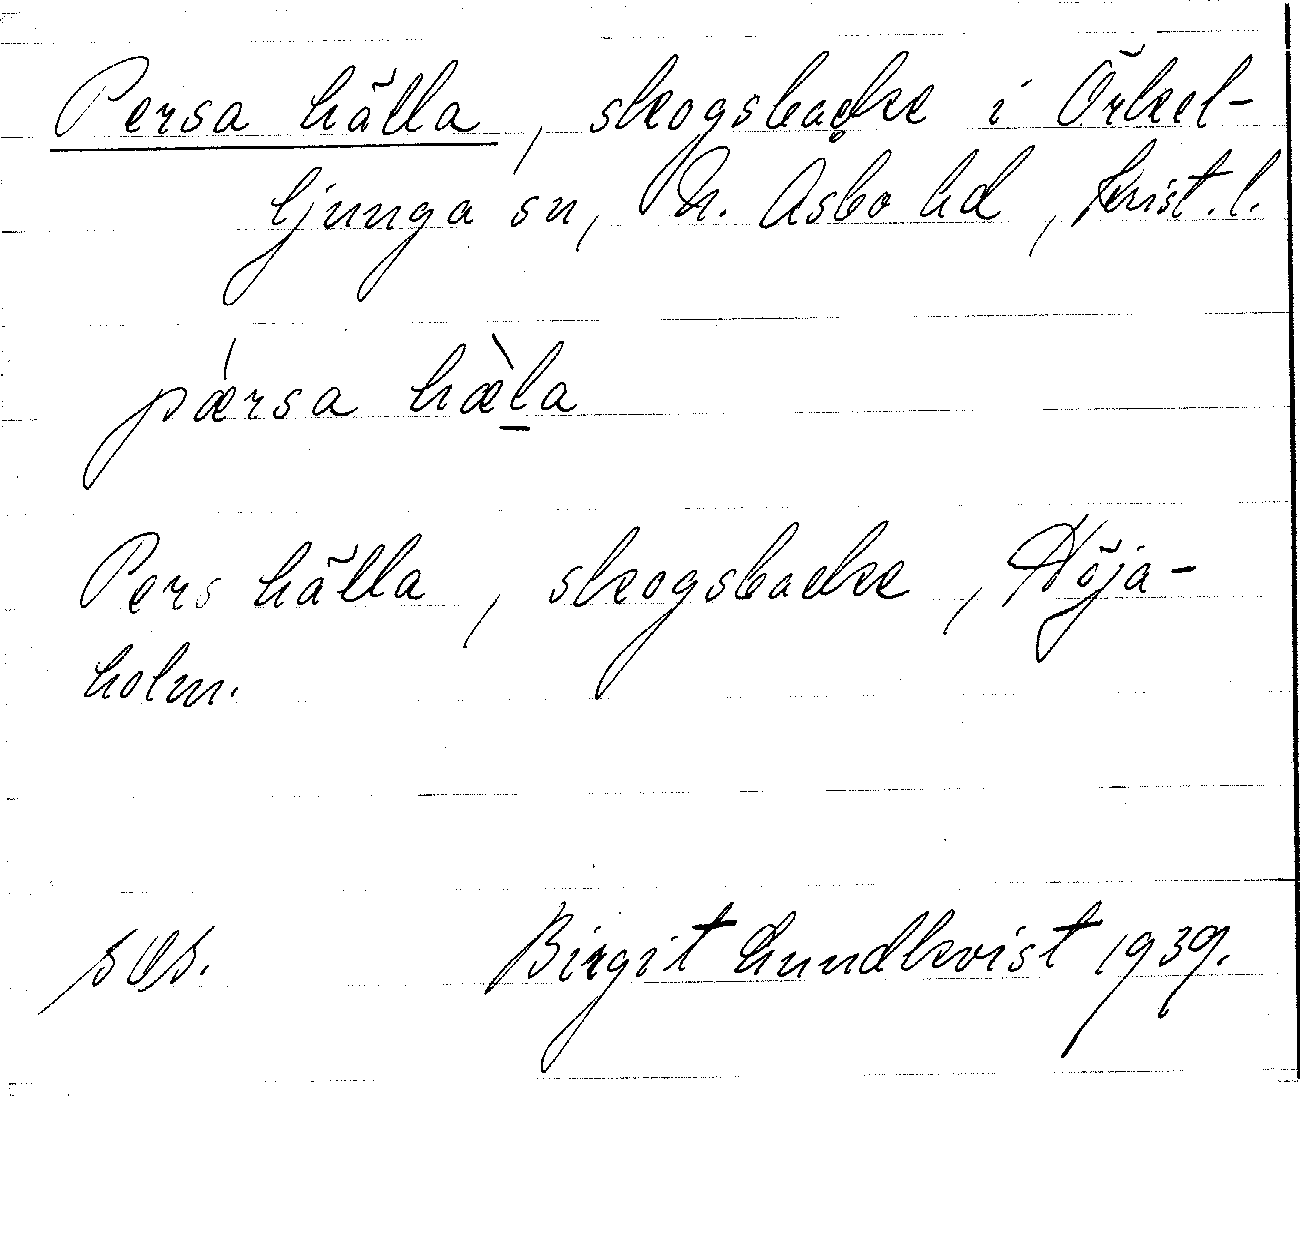 Persa hälla, skogsbacke i Örkel-
ljunga sn, N. Åsbo hd, Krist. l.
pǽrsa hæ̀l̲a
Pers hälla, skogsbacke, Höja-
holm.
Birgit Lundkvist 1939.